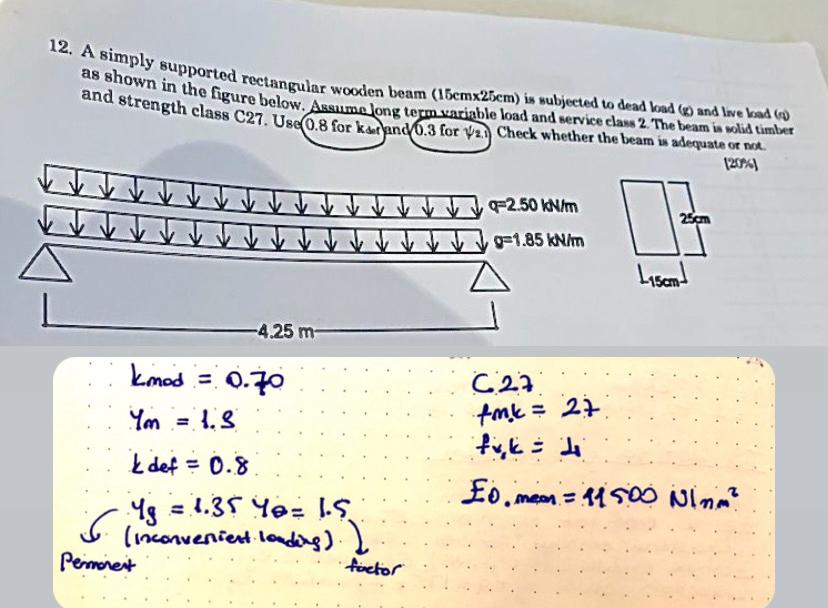 12. A simply supported rectangular wooden beam (15cmx25cm) is subjected to dead load (g) and live load (q)
as shown in the figure below. Assume long term variable load and service class 2. The beam is solid timber
and strength class C27. Use 0.8 for kdef and 0.3 for ψ2.1) Check whether the beam is adequate or not.
[20%]
q=2.50 kN/m
g=1.85 kN/m
25cm
15cm
4.25 m
kmod = 0.70
γm = 1.3
kdef = 0.8
γg = 1.35 γQ = 1.5
(inconvenient loading)
Permanent
factor
C27
fm,k = 27
fv,k = 4
E0,mean = 11500 N/mm²